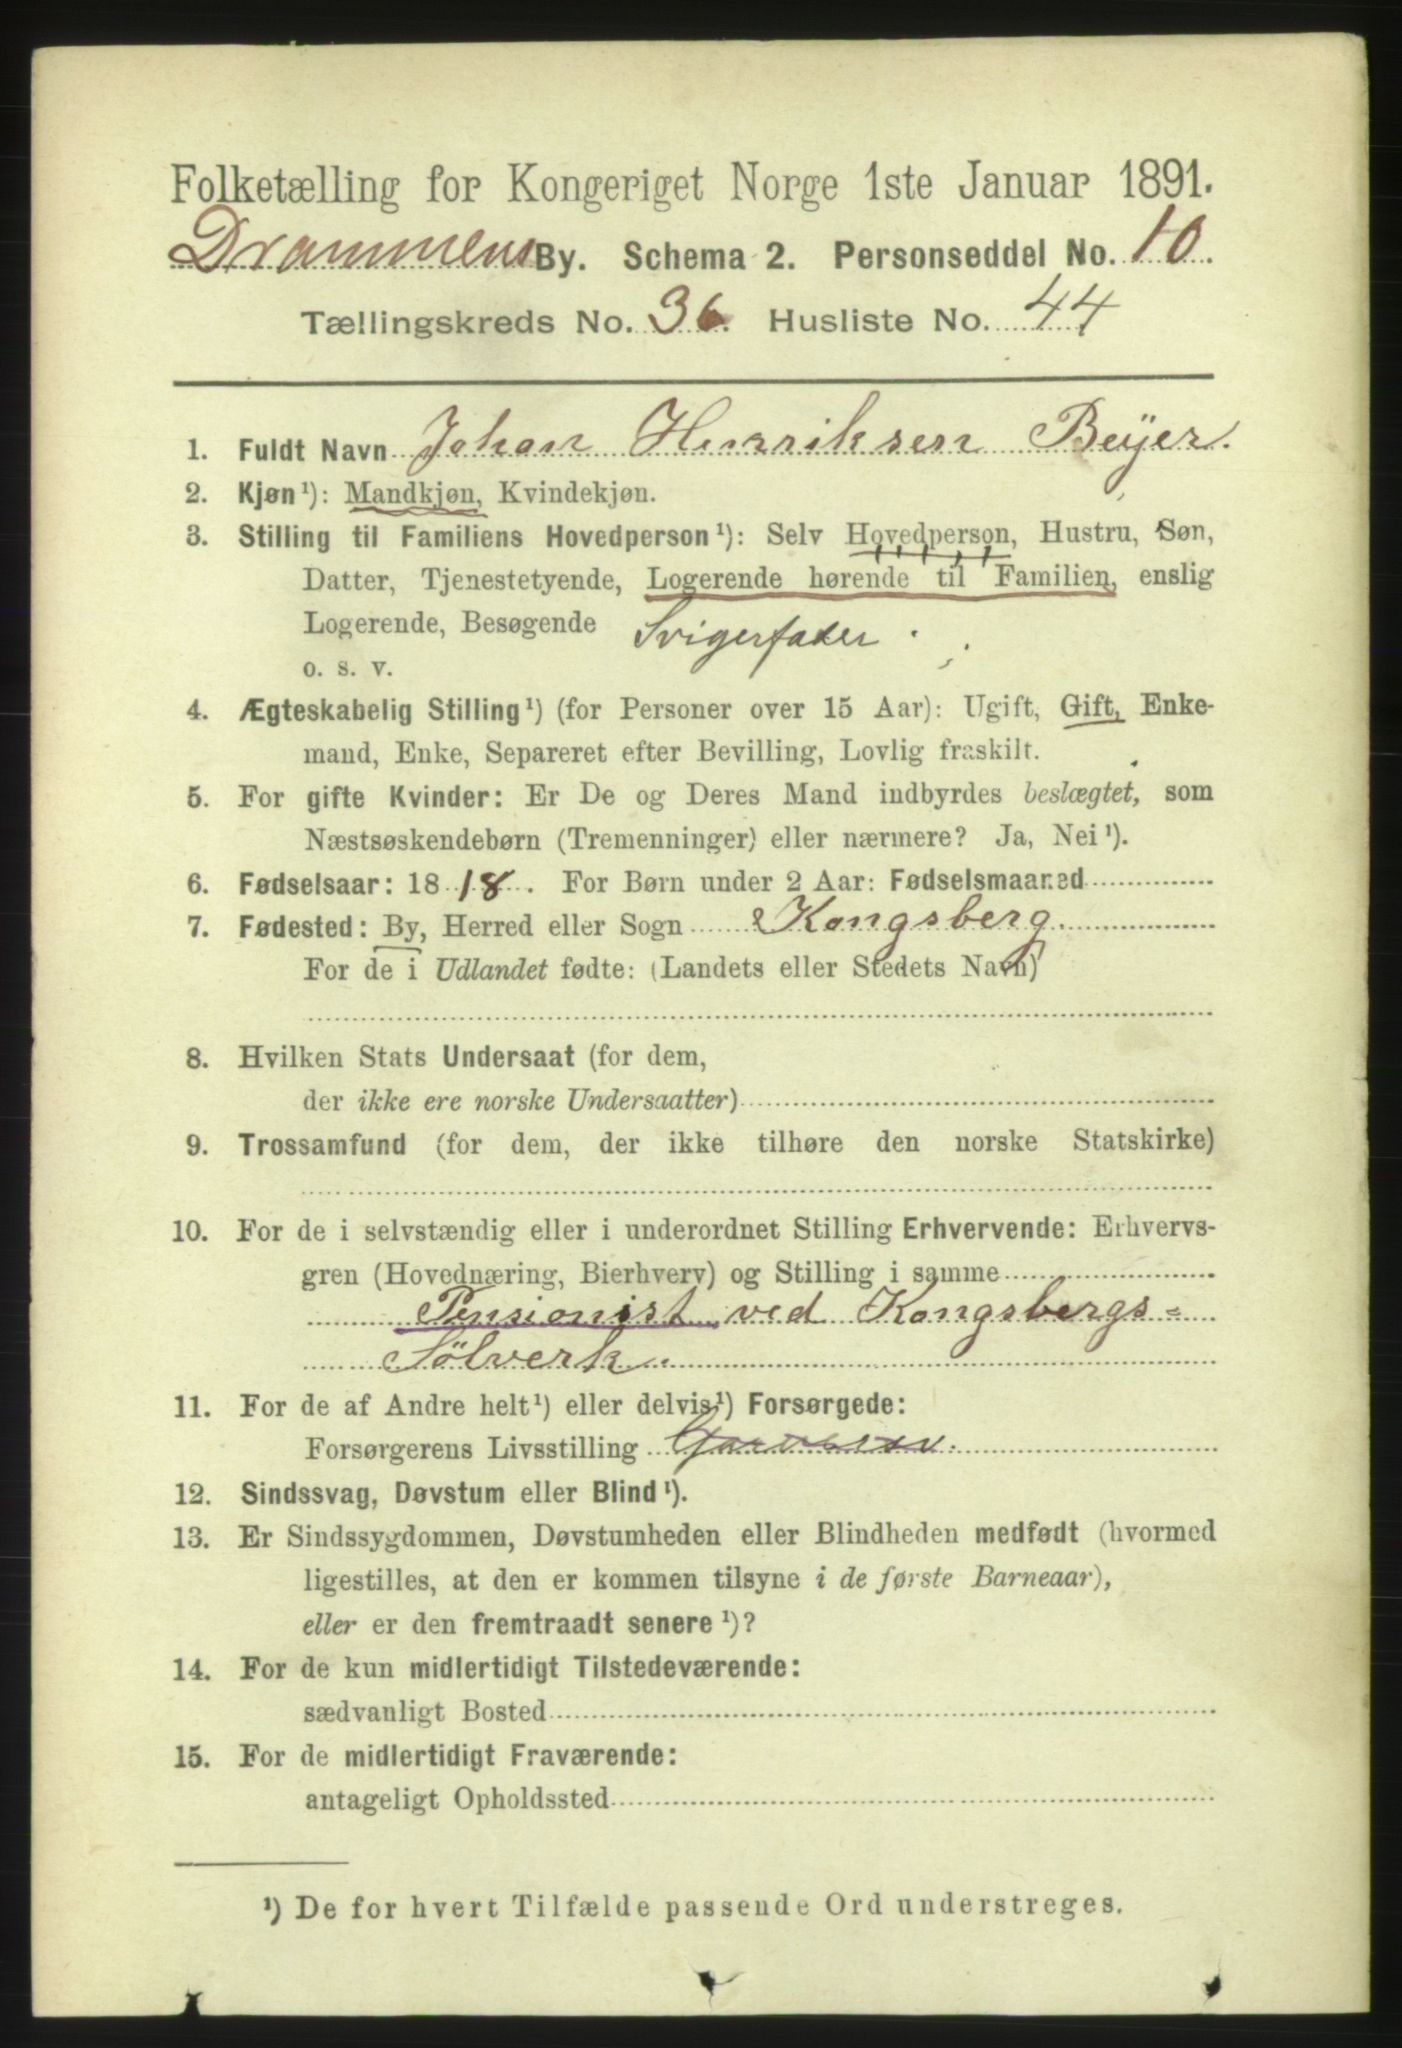 Folketælling for Kongeriget Norge 1ste Januar 1891.
Drammens By. Schema 2. Personseddel No. 10.
Tællingskreds No. 36. Husliste No. 44
1. Fuldt Navn Johan Henriksen Beyer.
2. Kjøn¹): Mandkjøn, Kvindekjøn.
3. Stilling til Familiens Hovedperson¹): Selv Hovedperson, Hustru, Søn,
Datter, Tjenestetyende, Logerende hørende til Familien, enslig
Logerende, Besøgende Svigerfader.
o. s. v.
4. Ægteskabelig Stilling¹) (for Personer over 15 Aar): Ugift, Gift, Enke-
mand, Enke, Separeret efter Bevilling, Lovlig fraskilt.
5. For gifte Kvinder: Er De og Deres Mand indbyrdes beslægtet, som
Næstsøskendebørn (Tremenninger) eller nærmere? Ja, Nei¹).
6. Fødselsaar: 1818. For Børn under 2 Aar: Fødselsmaaned
7. Fødested: By, Herred eller Sogn Kongsberg.
For de i Udlandet fødte: (Landets eller Stedets Navn)
8. Hvilken Stats Undersaat (for dem,
der ikke ere norske Undersaatter)
9. Trossamfund (for dem, der ikke tilhøre den norske Statskirke)
10. For de i selvstændig eller i underordnet Stilling Erhvervende: Erhvervs-
gren (Hovednæring, Bierhverv) og Stilling i samme
Pensionist ved Kongsbergs=
Sölverk.
11. For de af Andre helt¹) eller delvis¹) Forsørgede:
Forsørgerens Livsstilling
12. Sindssvag, Døvstum eller Blind¹).
13. Er Sindssygdommen, Døvstumheden eller Blindheden medfødt (hvormed
ligestilles, at den er kommen tilsyne i de første Barneaar),
eller er den fremtraadt senere¹)?
14. For de kun midlertidigt Tilstedeværende:
sædvanligt Bosted
15. For de midlertidigt Fraværende:
antageligt Opholdssted
¹) De for hvert Tilfælde passende Ord understreges.